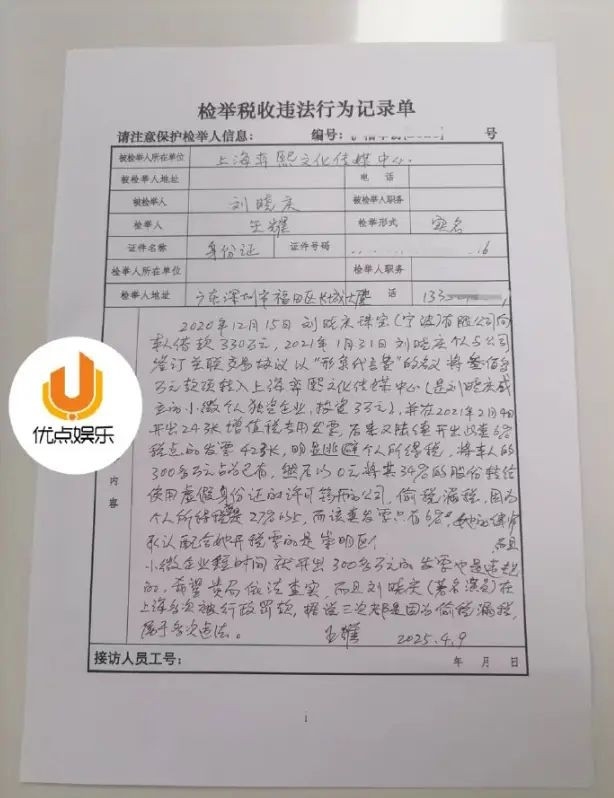 检举税收违法行为记录单
请注意保护检举人信息: 编号: 号
被检举人所在单位 上海弈熙文化传媒中心.
被检举人地址 电话
被检举人 刘晓庆 被检举人职务
检举人 王耀 检举形式 实名
证件名称 身份证 证件号码 6
检举人所在单位 检举人职务
检举人地址 广东深圳市福田区长城大厦 话 133
2020年12月15日刘晓庆珠宝(宁波)有限公司向
本人借款330万元, 2021年1月31日刘晓庆个人与公司
签订关联交易协议以"形象代言费"的名义将叁佰多
万元款项转入上海弈熙文化传媒中心(是刘晓庆成
立的小微个人独资企业,投资3万元),并在2021年2月
开出24张增值税专用发票,后来又陆续开出
税点的发票42张,明显逃避个人所得税,将本人的
300多万元占为己有,然后以0元将其34%的股份转给
使用虚假身份证的许可 的公司,偷税漏税,因为
个人所得税 ,而该类发票只有6%,她的律师
承认配合她开税票的是崇明区
小微企业短时间就开出300多万元的发票也是违规
的,希望贵局依法查实,而且刘晓庆(著名演员)在
上海多次被行政罚款,据说三次都是因为偷税漏税,
属于多次违法。 王耀 2025.4.9
内容
接访人员工号: 年 月 日
1
优点娱乐